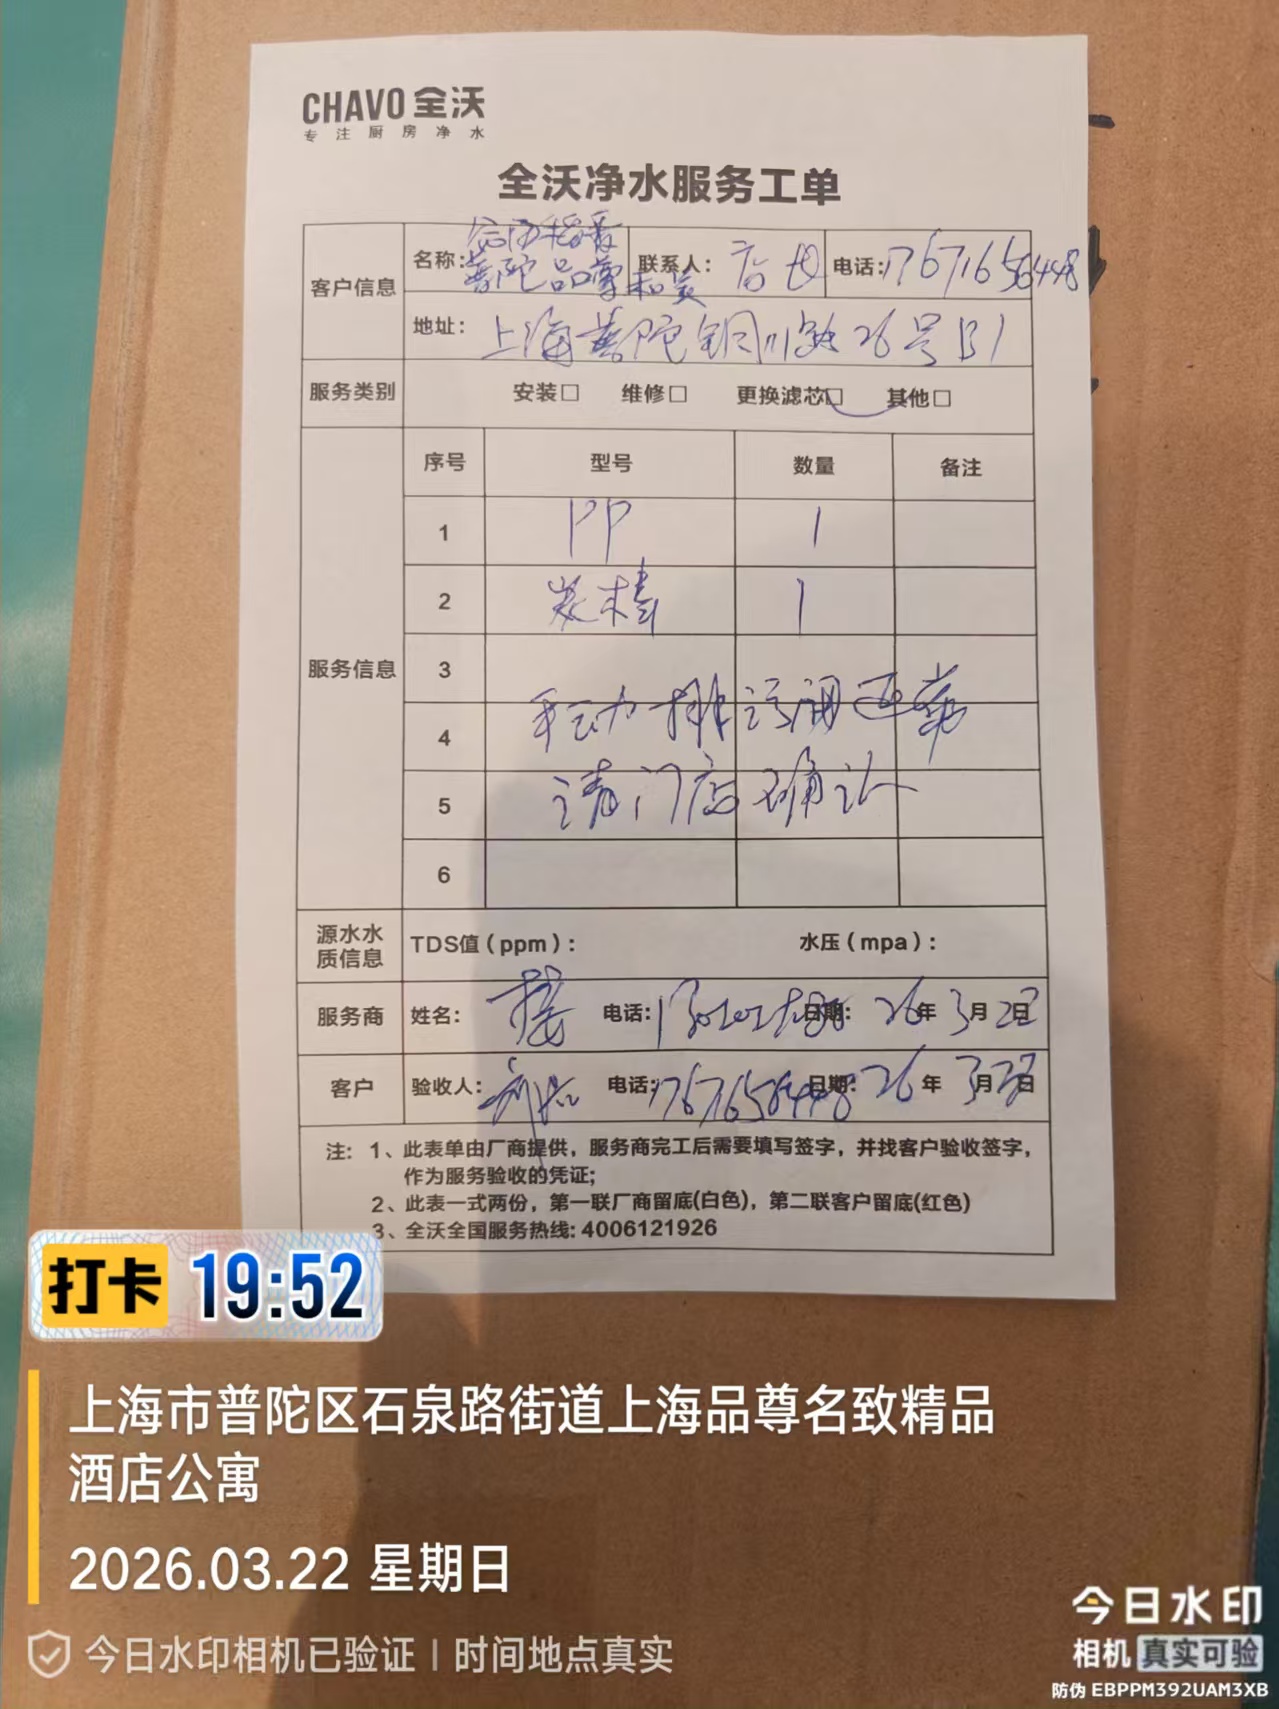 CHAVO 全沃
专注厨房净水
全沃净水服务工单
客户信息
名称:
普陀品尊和寅
联系人: 店长
电话: 17671656448
地址: 上海普陀铜川路26号B1
服务类别
安装□ 维修□ 更换滤芯□ 其他□
服务信息
序号 型号 数量 备注
1 PP 1
2 炭棒 1
3
手动排污阀
4
请门店确认
5
6
源水水质信息
TDS值(ppm): 水压(mpa):
服务商 姓名: 电话: 日期: 26年3月22日
客户 验收人: 电话: 17671656448 日期: 26年3月22日
注: 1、此表单由厂商提供，服务商完工后需要填写签字，并找客户验收签字，
作为服务验收的凭证;
2、此表一式两份，第一联厂商留底(白色)，第二联客户留底(红色)
3、全沃全国服务热线: 4006121926
打卡 19:52
上海市普陀区石泉路街道上海品尊名致精品
酒店公寓
2026.03.22 星期日
今日水印相机已验证 | 时间地点真实
今日水印
相机 真实可验
防伪 EBPPM392UAM3XB